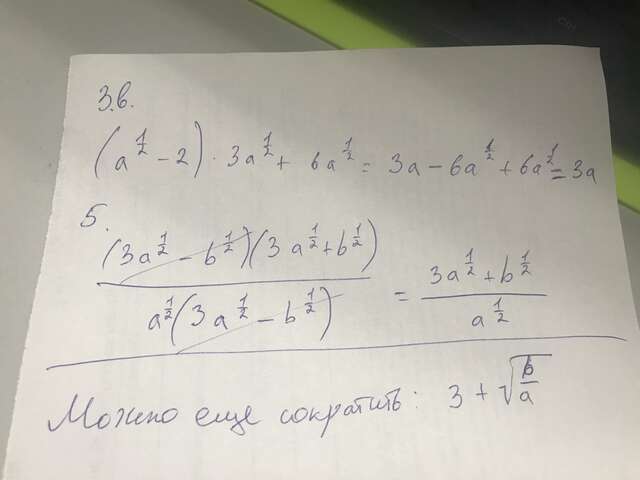 3.в.
(a^{1/2} - 2) · 3a^{1/2} + 6a^{1/2} = 3a - 6a^{1/2} + 6a^{1/2} = 3a
5.
(3a^{1/2} - b^{1/2})(3a^{1/2} + b^{1/2}) / a^{1/2}(3a^{1/2} - b^{1/2}) = 3a^{1/2} + b^{1/2} / a^{1/2}
Можно еще сократить: 3 + √(b/a)